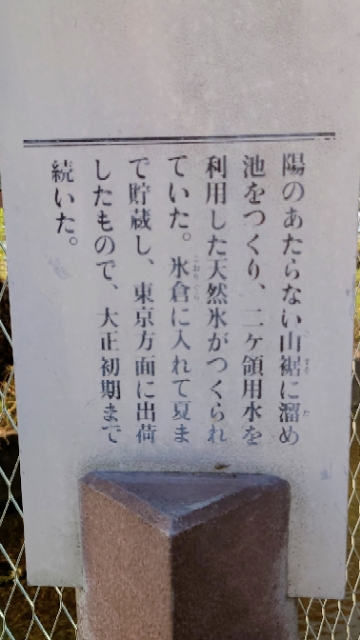 陽のあたらない山裾に溜め
池をつくり、二ヶ領用水を
利用した天然氷がつくられ
ていた。氷倉に入れて夏ま
で貯蔵し、東京方面に出荷
したもので、大正初期まで
続いた。